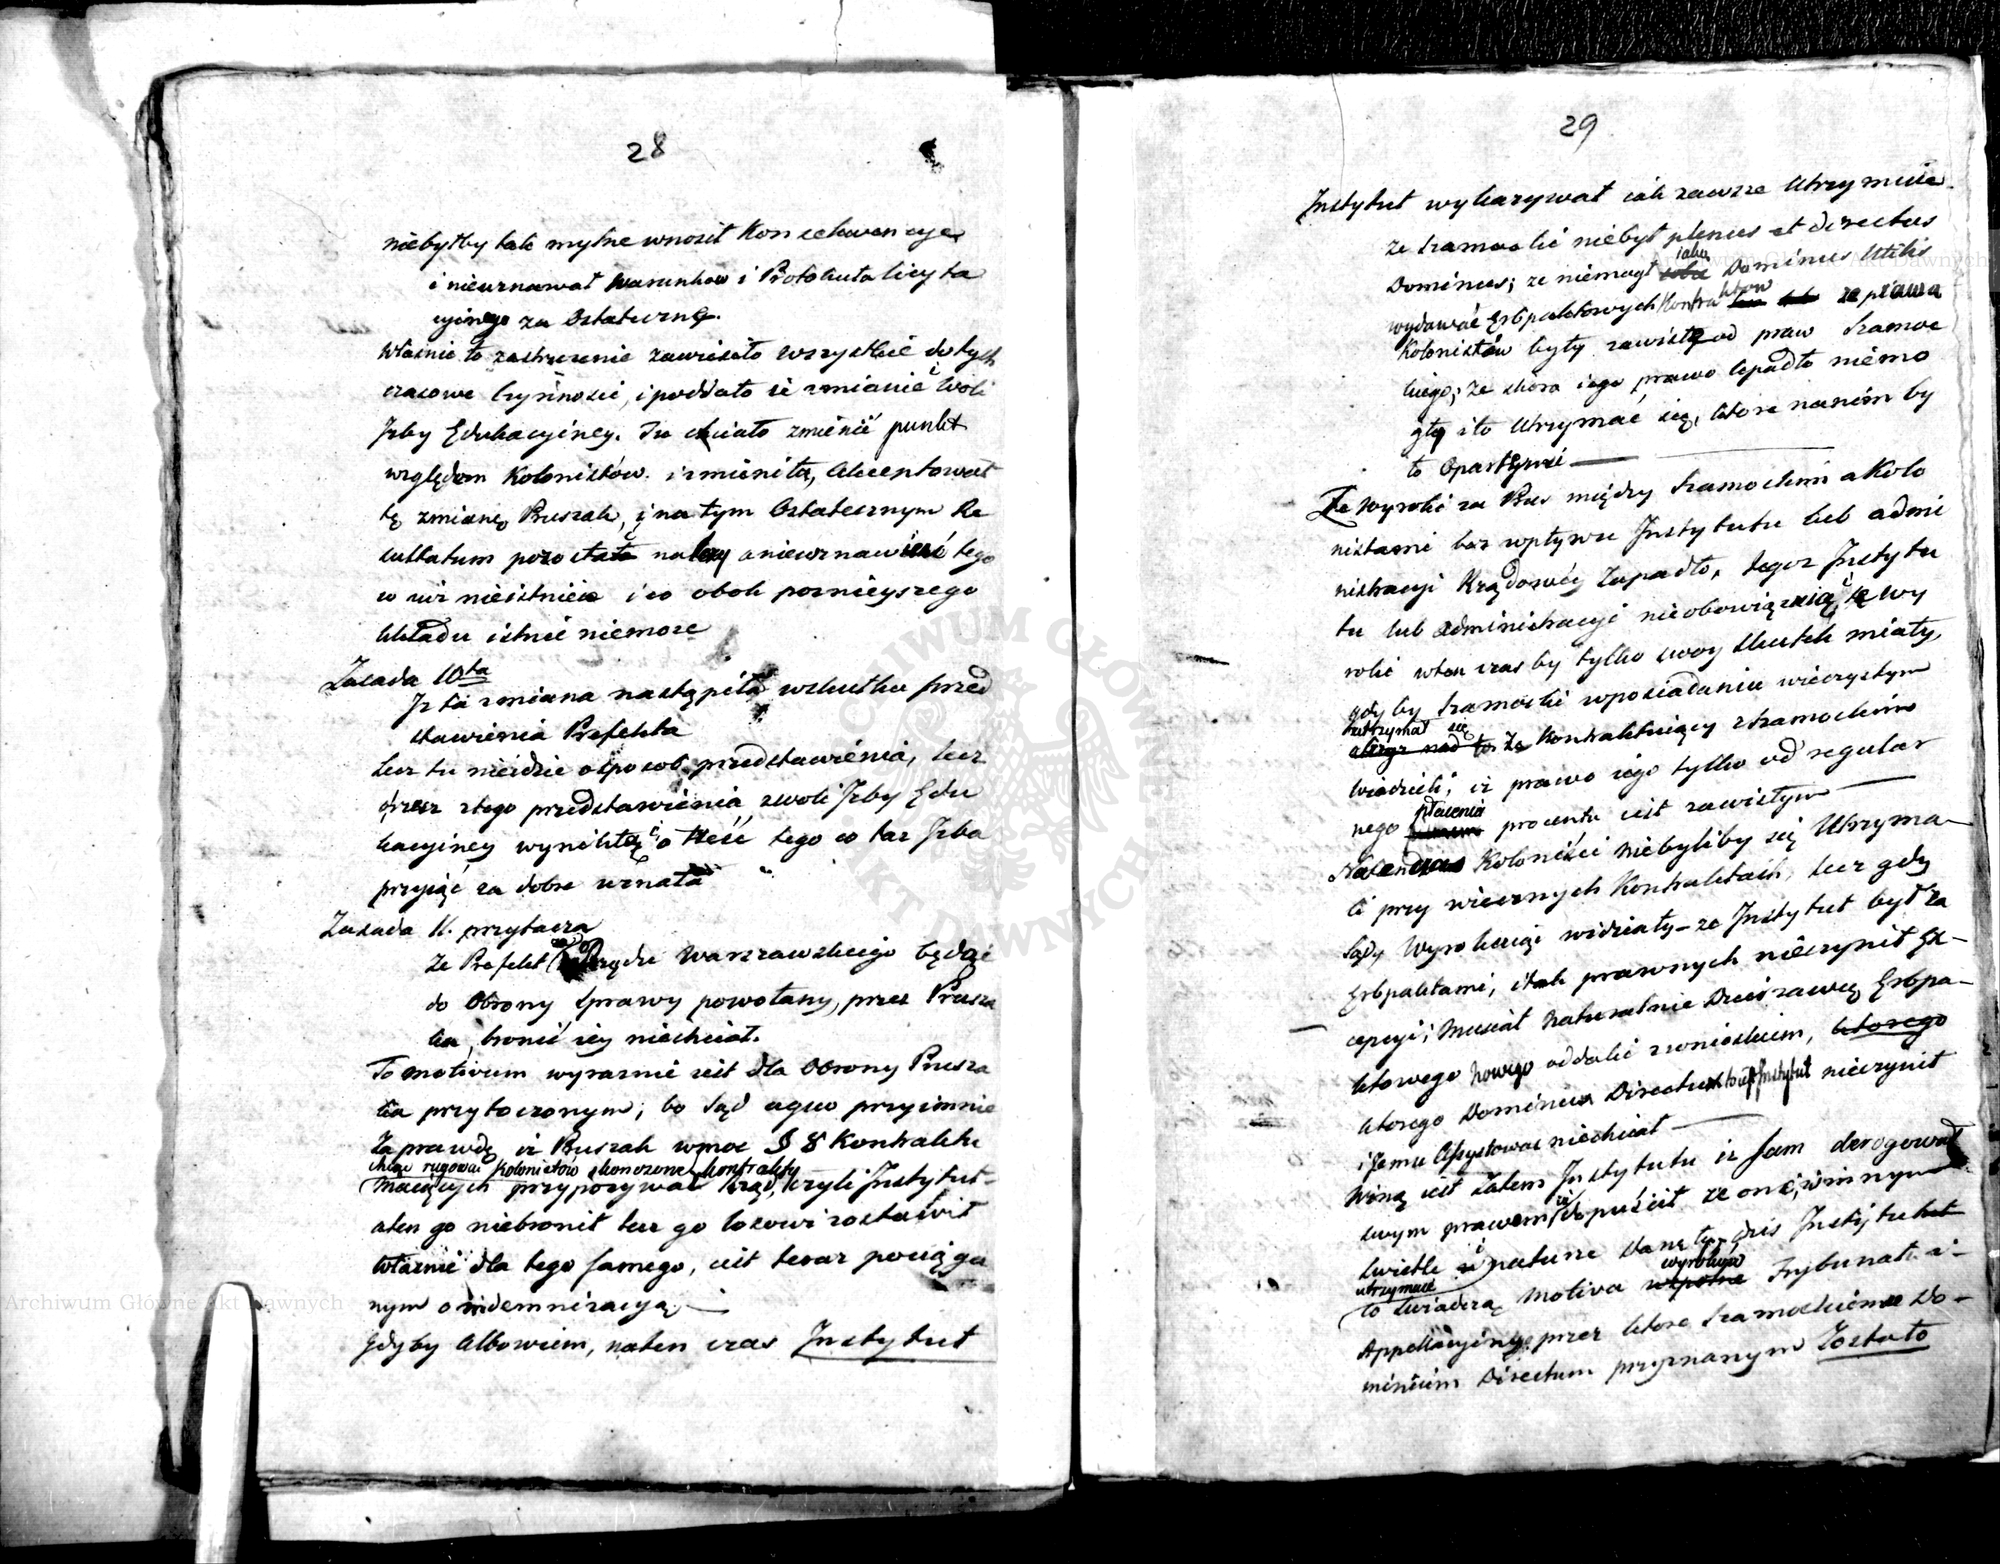 28
niebyłby tak mylne wnosił Konsekwencye
i nieuznawał Warunków i Protokuła licyta
cyinego za Ostateczne.
Właśnie to zastrzeżenie zawiesiło wszystkie dotych
czasowe czynności, i poddało ie zmianie i woli
Izby Edukacyiney. Ta chciała zmienić punkt
względem Kolonistów. i zmieniła, Akceptował
tę zmianę Ruszak, i na tym Ostatecznym Re
zultatum pozostać należy a nieuznawać tego
co iuż nieistnieie i co obok poznieyszego
układu istnieć niemoże
Zasada 10ta
Iż ta zmiana nastąpiła wskutku przed
stawienia Prefekta
Lecz tu nieidzie o sposob przedstawienia, lecz
o rzecz z tego przedstawienia z woli Izby Edu
kacyiney wynikłą i o treść tego co taż Izba
przyiąć za dobre uznała
Zasada 11. przytacza
że Prefekt Rządu Warszawskiego będąc
do Obrony sprawy powołany, przez Rusza
ka, bronić iey niechciał.
To motivum wyraznie iest dla Obrony Rusza
ka przytoczonym; bo Sąd aquo przyimuie
Za prawdę iż Ruszak wmoc § 8 Kontraktu
chcąc rugować Kolonistów skonczone kontrakty
maiących przypozywał Rząd, czyli Instytut
a ten go niebronił lecz go losowi zostawił
Właśnie dla tego samego, iest teraz pociąga
nym o indemnizacyą
Gdyby Albowiem, naten czas Instytut
29
Instytut wykazywał iak zawsze Utrzymuie
że Szamocki niebył plenus et directus
Dominus; że niemogł iako Dominus Utilis
wydawać Erbpaktowych Kontraktow że prawa
Kolonistów były zawisłe od praw Szamoc
kiego; że skoro iego prawo upadło niemo
gły i to Utrzymać się, ktore na nim by
ło Oparte
Że Wyroki za Prus między Szamockim a Kolo
nistami bez wpływu Instytutu lub admi
nistracyi Rządowey Zapadło, tegoż Instytu
tu lub administracyi nieobowiązuią, że wy
roki w ten czas by tylko swoy skutek miały,
gdyby Szamocki w posiadaniu wieczystym
utrzymał się
że Kontraktuiący z Szamockim
wiedzieli, iż prawo iego tylko od regular
nego płacenia procentu iest zawisłym
Natenczas Koloniści niebyliby się Utrzyma
li przy wiecznych Kontraktach, lecz gdy
Sądy Wyrokuiące widziały że Instytut był za
Erbpaktami, i tak prawnych nieczynił Ex
cepcyi; Musiał naturalnie Dzierżawcę Erbpa
ktowego nowego oddalić z wnioskiem, ktorego
ktorego Dominus Directus to iest Instytut nieczynił
i Jemu Assystować niechciał
Winą iest zatem Instytutu iż sam derogował
swym prawem i dopuścił że one, w innym
świetle i naturze Daney dziś Instytut
utrzymuie
to świadczą Motiva wyroku Trybunał
Appellacyiny przez ktore Szamockiemu Do
minium Directum przyznanym Zostało